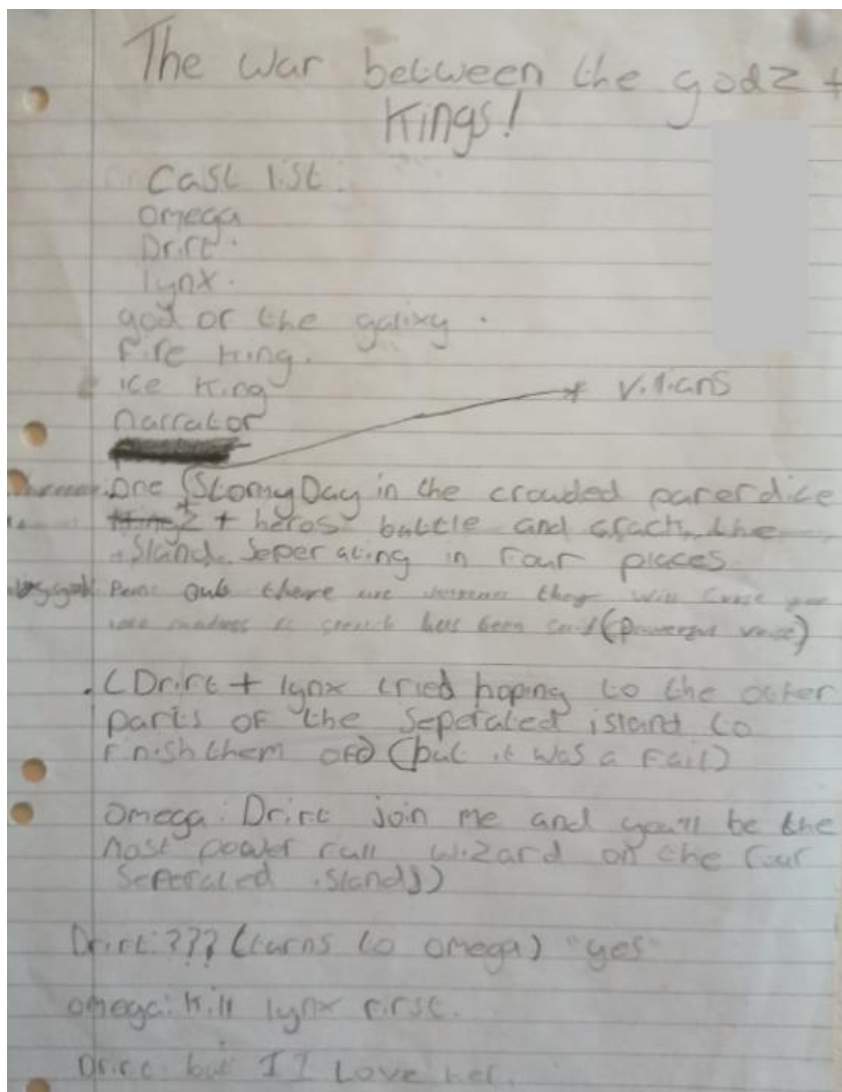 The war between the godz +
Kings!
Cast list:
omega
Drift.
lynx.
god of the galixy.
fire king.
ice king
narrator
villians
One Stormy Day in the crowded parerdice
+ heros battle and crach the
island. Seperating in four pieces
out there they will
has been (powerful voice)
(Drift + lynx tried hoping to the outer
parts of the Seperated island to
finish them off) (but it was a fail)
omega: Drift join me and you'll be the
most power full wizard on the four
seperated islands)
Drift: ??? (turns to omega) "yes"
omega: kill lynx first.
Drift: but I I Love her.